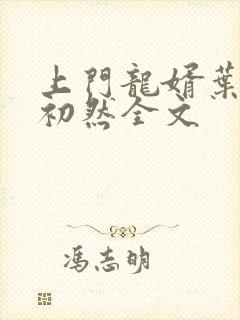 上門龍婿葉
初然全文
馮志明